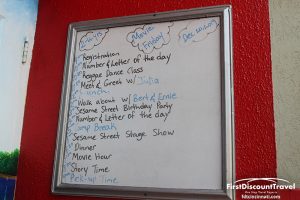 Movie
Friday
Registration
Number & Letter of the day
Reggae Dance Class
Meet & Greet w/ Julia
Lunch
Walk about w/ Bert & Ernie
Sesame Street Birthday Party
Number & Letter of the day
Break
Sesame Street Stage Show
Dinner
Movie Hour
Story Time
Pick-up Time
FIRSTDISCOUNTTRAVEL